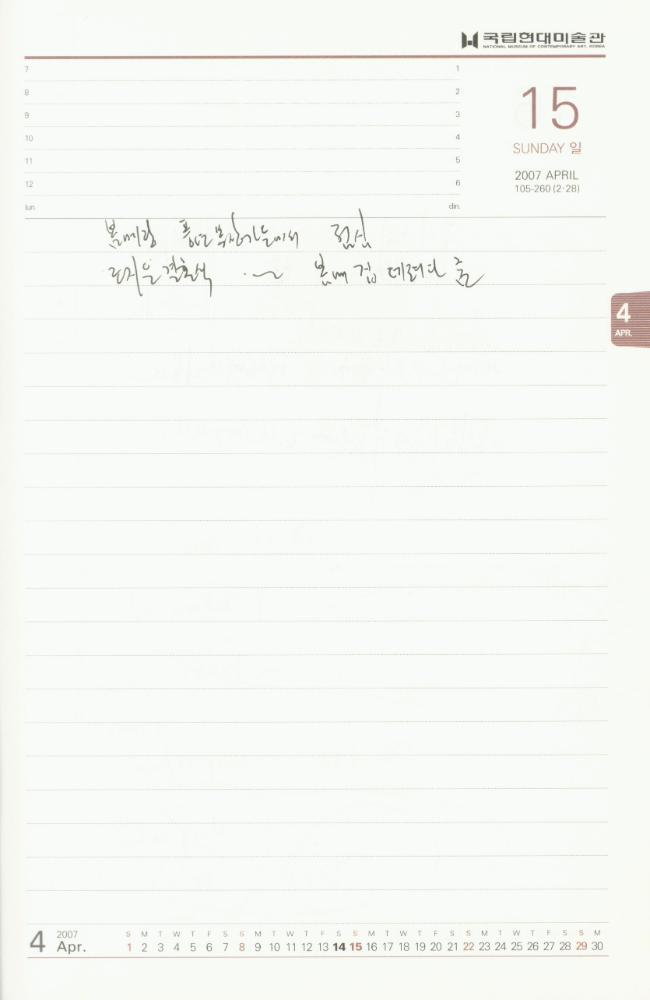 국립현대미술관
NATIONAL MUSEUM OF CONTEMPORARY ART, KOREA
7 1
8 2
9 3
10 4
11 5
12 6
lun. din.
15
SUNDAY 일
2007 APRIL
105-260 (2·28)
점심
집 데려다 줌
4
APR.
4 2007 Apr.
S M T W T F S S M T W T F S S M T W T F S S M T W T F S S M
1 2 3 4 5 6 7 8 9 10 11 12 13 14 15 16 17 18 19 20 21 22 23 24 25 26 27 28 29 30